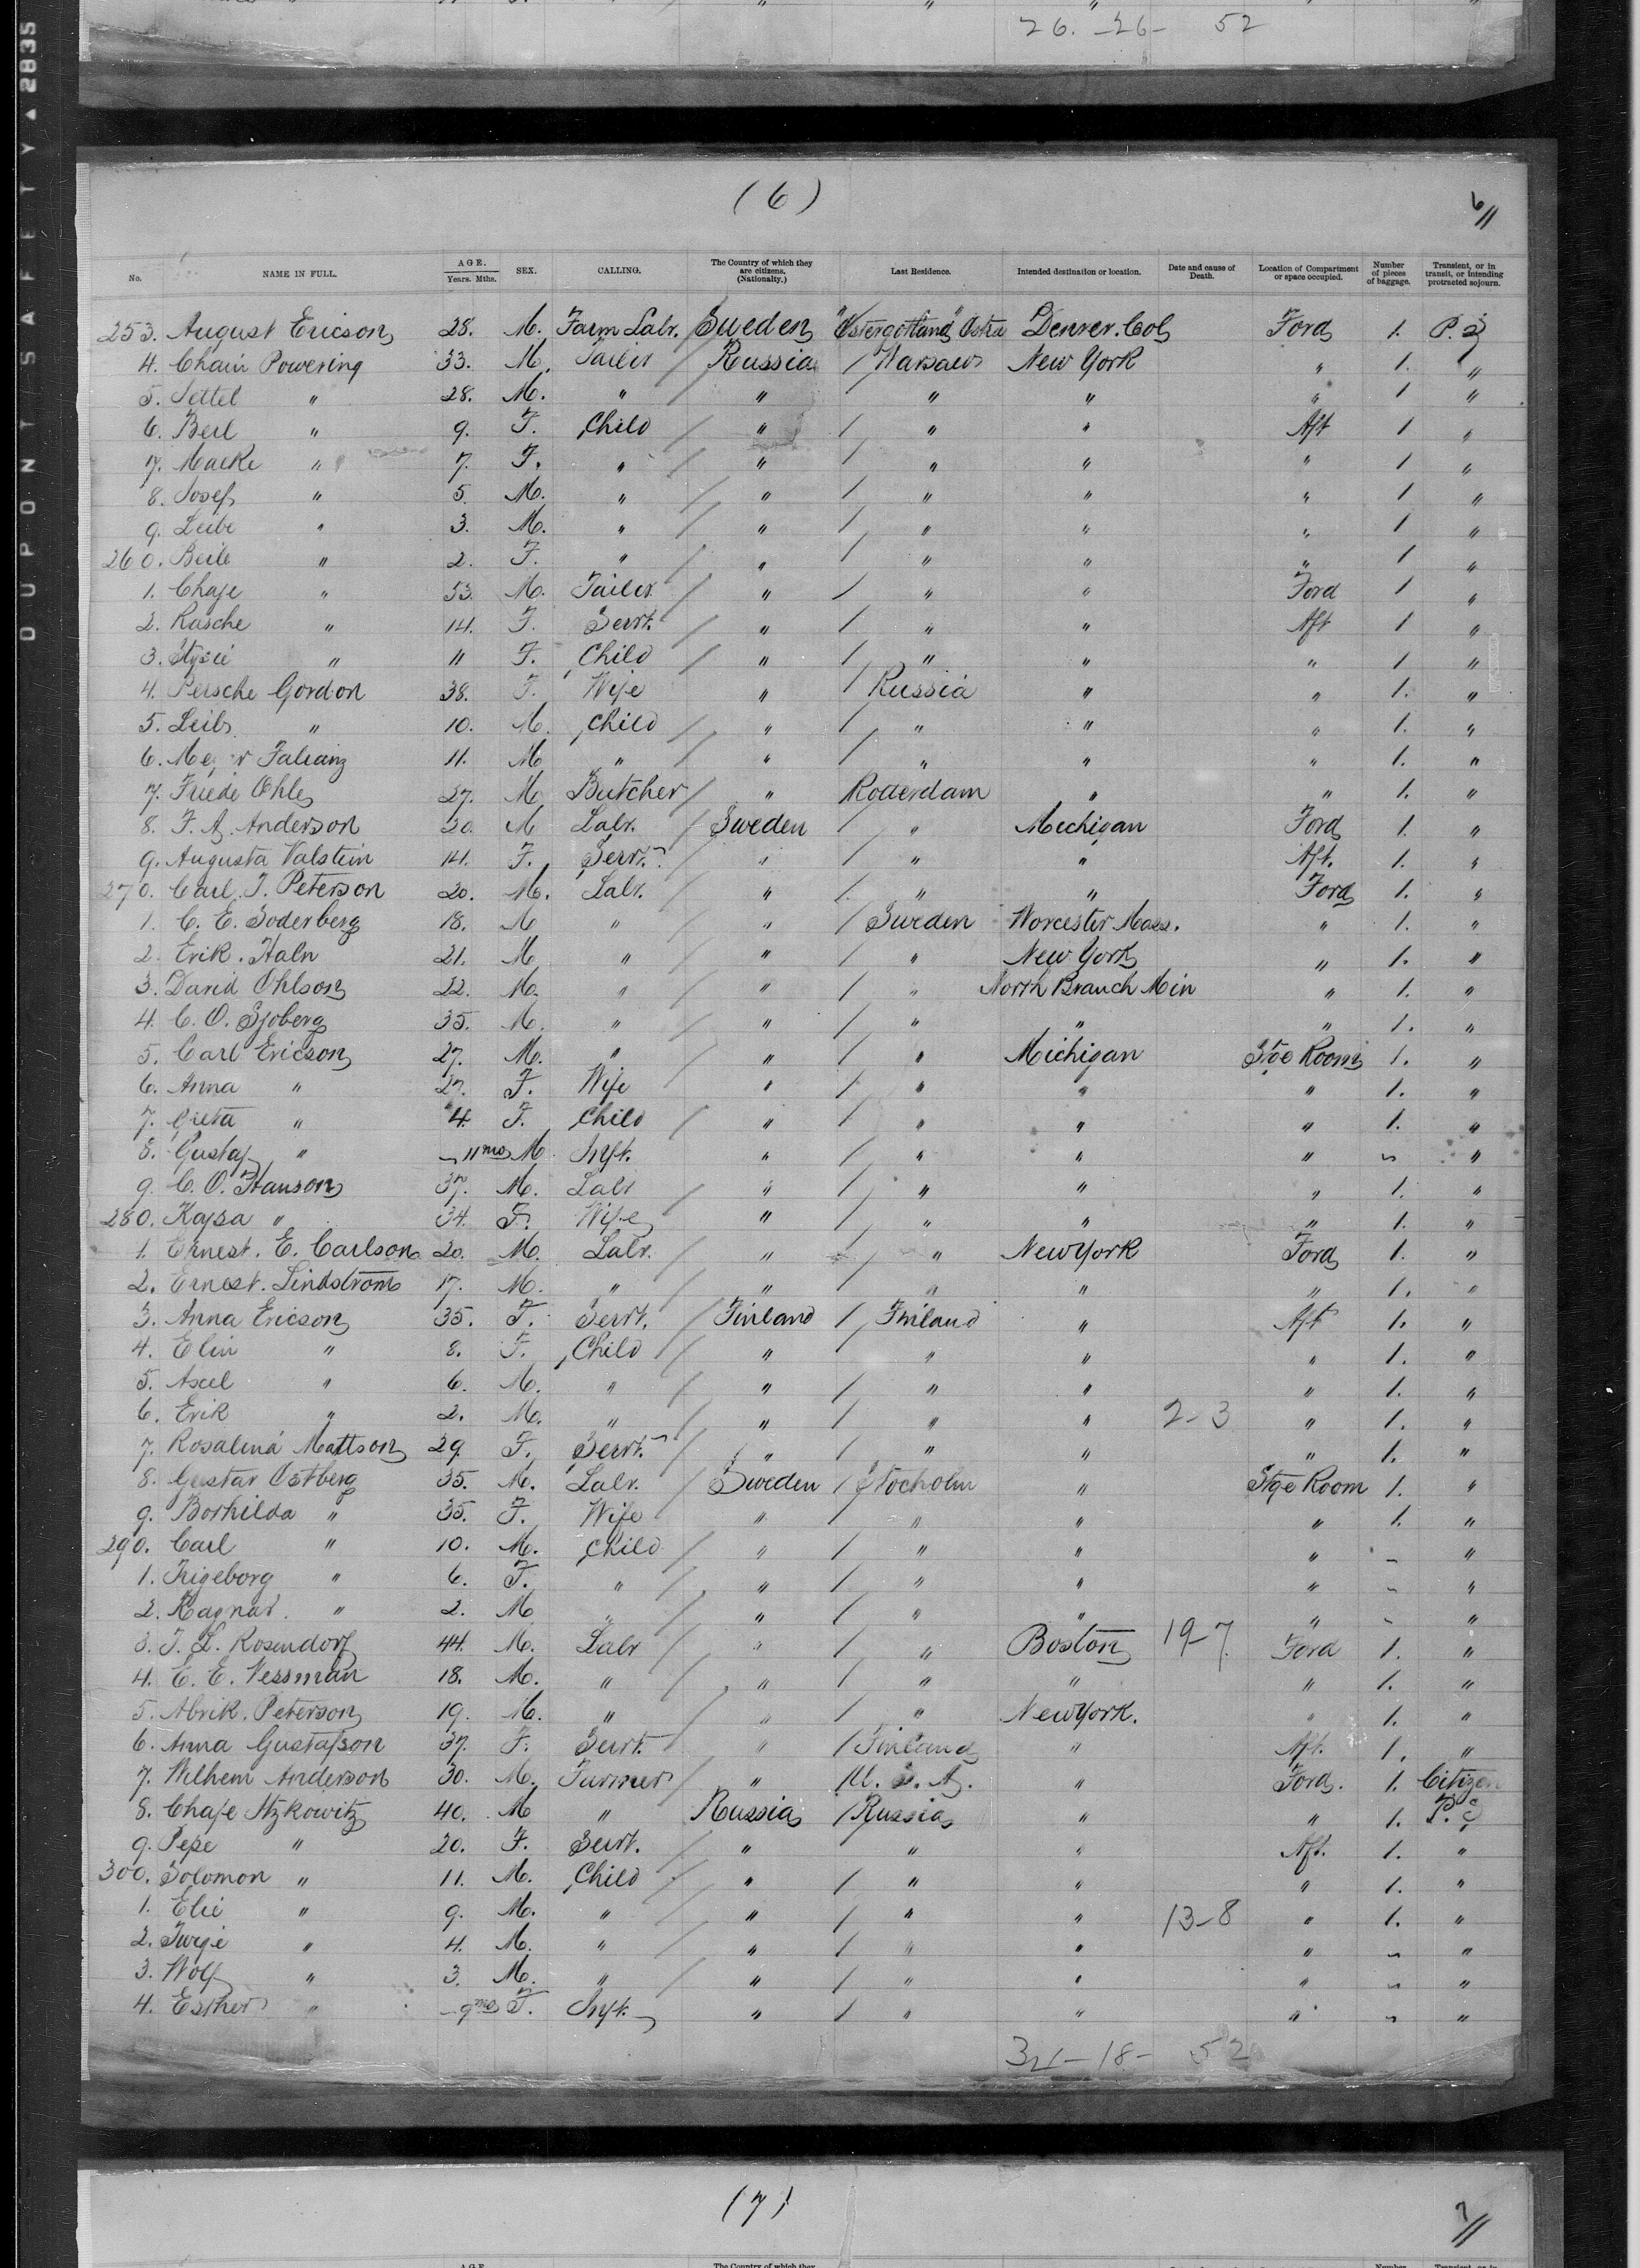 26. -26- 52
DUPONT SAFETY ▲ 2835
(6)
6//
No. NAME IN FULL. AGE. Years. Mths. SEX. CALLING. The Country of which they are citizens. (Nationality.) Last Residence. Intended destination or location. Date and cause of Death. Location of Compartment or space occupied. Number of pieces of baggage. Transient, or in transit, or intending protracted sojourn.
253. August Ericson 28. M. Farm Labr. Sweden "Ostergotland" Ostra Denver. Col Ford 1. P. S
4. Chain Powering 33. M. Tailor Russia / Warsaw New York " 1. "
5. Settel " 28. M. " " " " " 1 "
6. Berl " 9. F. Child " / " " Aft 1 "
7. Macke " 7. F. " " / " " " 1 "
8. Josef " 5. M. " " / " " " 1 "
9. Leibe " 3. M. " " / " " " 1 "
260. Beile " 2. F. " " / " " " 1 "
1. Chaje " 53. M. Tailor " / " " Ford 1 "
2. Rasche " 14. F. Servt. " / " " Aft 1 "
3. " 11 F. Child " / " " " 1 "
4. Persche Gordon 38. F. Wife " / Russia " " 1. "
5. Leib " 10. M. Child " / " " " 1. "
6. Falianz 11. M " " / " " " 1. "
7. Friede Ohle 27. M Butcher " Roderdam " " 1. "
8. F. A. Anderson 20. M Labr. Sweden / " Michigan Ford 1. "
9. Augusta Valstein 14. F. Servt. " / " " Aft. 1. "
270. Carl. J. Peterson 20. M. Labr. " / " " Ford 1. "
1. C. E. Soderberg 18. M " " / Sweden Worcester Mass. " 1. "
2. Erik. Haln 21. M " " / " New York " 1. "
3. David Ohlson 22. M. " " / " North Branch Min " 1. "
4. C. O. Sjoberg 35. M. " " / " " " 1. "
5. Carl Ericson 27. M. " " / " Michigan Stge Room 1. "
6. Anna " 27. F. Wife " / " " " 1. "
7. Greta " 4. F. Child " / " " " 1. "
8. Gustaf " - 11 mos M. Inft. " / " " " ~ "
9. C. O. Hanson 37. M. Labr " / " " " 1. "
280. Kajsa " 34. F. Wife " / " " " 1. "
1. Ernest. E. Carlson 20. M. Labr. " " New York Ford 1. "
2. Ernest. Lindstrom 17. M. " " / " " " 1. "
3. Anna Ericson 35. F. Servt. Finland / Finland " Aft 1. "
4. Elin " 8. F. Child " / " " " 1. "
5. Axel " 6. M. " " / " " " 1. "
6. Erik " 2. M. " " / " " 2-3 " 1. "
7. Rosalina Mattson 29 F. Servt. " / " " " 1. "
8. Gustav Ostberg 35. M. Labr. Sweden / Stocholm " Stge Room 1. "
9. Borhilda " 35. F. Wife " / " " " 1. "
290. Carl " 10. M. Child " / " " " - "
1. Ingeborg " 6. F. " " / " " " ~ "
2. Ragnar. " 2. M " " / " " " ~ "
3. J. L. Rosendorf 44. M. Labr " / " Boston 19-7. Ford 1. "
4. E. E. Vessman 18. M. " " / " " " 1. "
5. Abrik. Peterson 19. M. " " / " New York. " 1. "
6. Anna Gustafson 37. F. Servt. " / Finland " Aft. 1. "
7. Wilhem Anderson 30. M. Farmer " / U. S. A. " Ford. 1. Citizen
8. Chaje Itzkowitz 40. M " Russia / Russia " " 1. P. S
9. Pepe " 20. F. Servt. " " " Aft. 1. "
300. Solomon " 11. M. Child " / " " " 1. "
1. Elie " 9. M. " " / " " 13-8 " 1. "
2. " 4. M. " " / " " " ~ "
3. Wolf " 3. M. " " / " " " ~ "
4. Esther " - 9 mos F. Inft. " / " " " ~ "
34-18- 52
(7)
7//
AGE The Country of which they Number Transient, or in